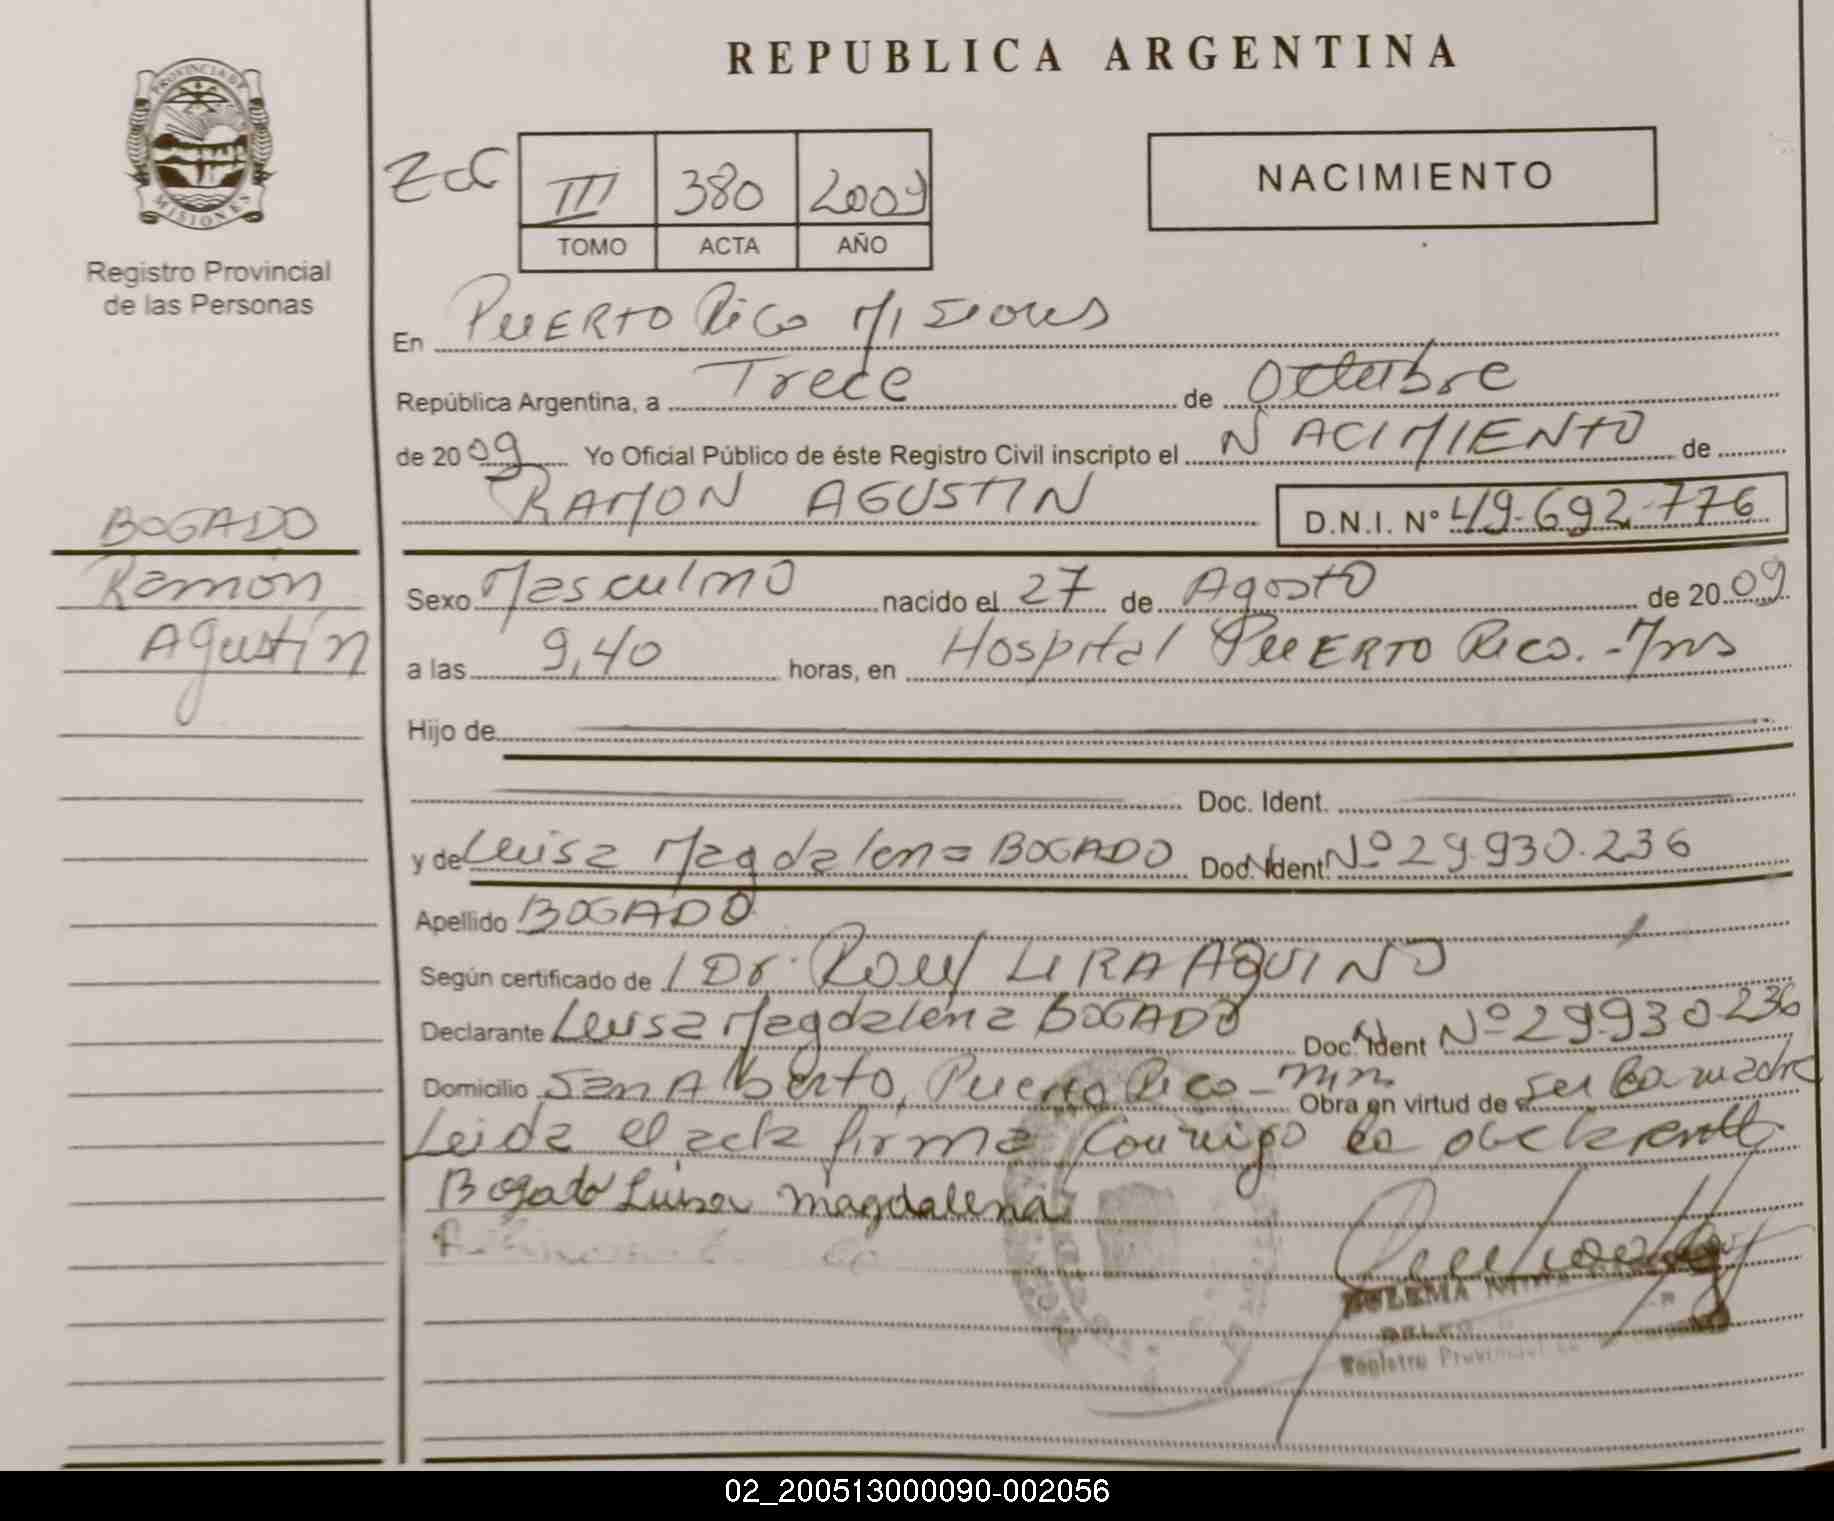 REPUBLICA ARGENTINA
PROVINCIA DE
MISIONES
Registro Provincial
de las Personas
III 380 2009
TOMO ACTA AÑO
NACIMIENTO
En PUERTO Rico Misiones
República Argentina, a Trece de Octubre
de 2009 Yo Oficial Público de éste Registro Civil inscripto el NACIMIENTO de
RAMON AGUSTIN D.N.I. N° 49.692.776
BOGADO
Ramón
Agustín
Sexo Masculino nacido el 27 de Agosto de 2009
a las 9,40 horas, en Hospital PUERTO Rico.-Mns
Hijo de
Doc. Ident.
y de Luisa Magdalena BOGADO Doc. Ident. Nº 29.930.236
Apellido BOGADO
Según certificado de Dr. AQUINO
Declarante Luisa Magdalena BOGADO Doc. Ident Nº 29.930.236
Domicilio San Alberto, Puerto Rico - Obra en virtud de ser la madre
Leida el acta firma conmigo la declarante
Bogado Luisa Magdalena
Registro Provincial de
02_200513000090-002056